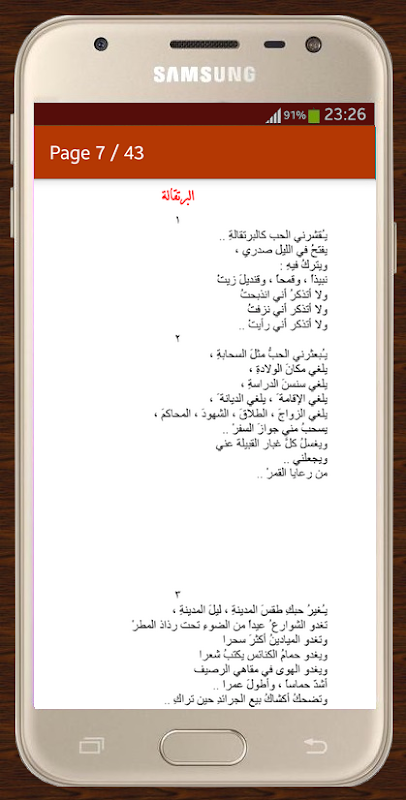 SAMSUNG
91% 23:26
Page 7 / 43
البرتقالة
١
يُقشرني الحب كالبرتقالةِ ..
يفتحُ في الليل صدري ،
ويتركُ فيهِ :
نبيذاً ، وقمحاً ، وقنديلَ زيتْ
ولا أتذكرُ أني انذبحتُ
ولا أتذكر أني نزفتُ
ولا أتذكر أني رأيتْ ..
٢
يُبعثرني الحبُّ مثلَ السحابةِ ،
يلغي مكانَ الولادةِ ،
يلغي سنينَ الدراسةِ ،
يلغي الإقامةَ ، يلغي الديانةَ ،
يلغي الزواجَ ، الطلاقَ ، الشهودَ ، المحاكمَ ،
يسحبُ مني جوازَ السفرْ ..
ويغسلُ كلَّ غبار القبيلة عني
ويجعلني ..
من رعايا القمرْ ..
٣
يُغيرُ حبكِ طقسَ المدينةِ ، ليلَ المدينةِ ،
تغدو الشوارعُ عيداً من الضوءِ تحت رذاذ المطرْ
وتغدو الميادينُ أكثرَ سحرا
ويغدو حمامُ الكنائس يكتبُ شعرا
ويغدو الهوى في مقاهي الرصيف
أشدَّ حماساً ، وأطولَ عمرا ..
وتضحكُ أكشاكُ بيع الجرائدِ حين تراكِ ..